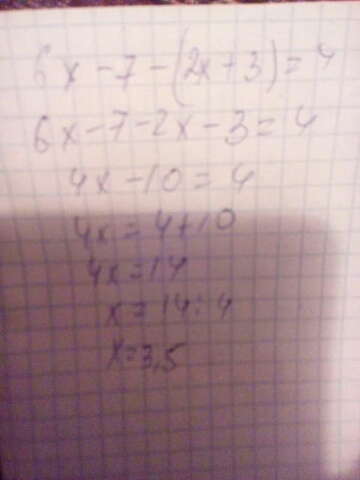 6x-7-(2x+3)=4
6x-7-2x-3=4
4x-10=4
4x=4+10
4x=14
x=14:4
x=3,5